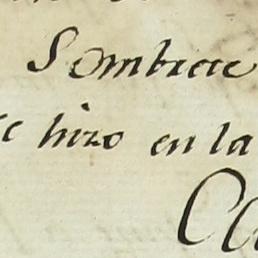 Sombrete
se hizo en la